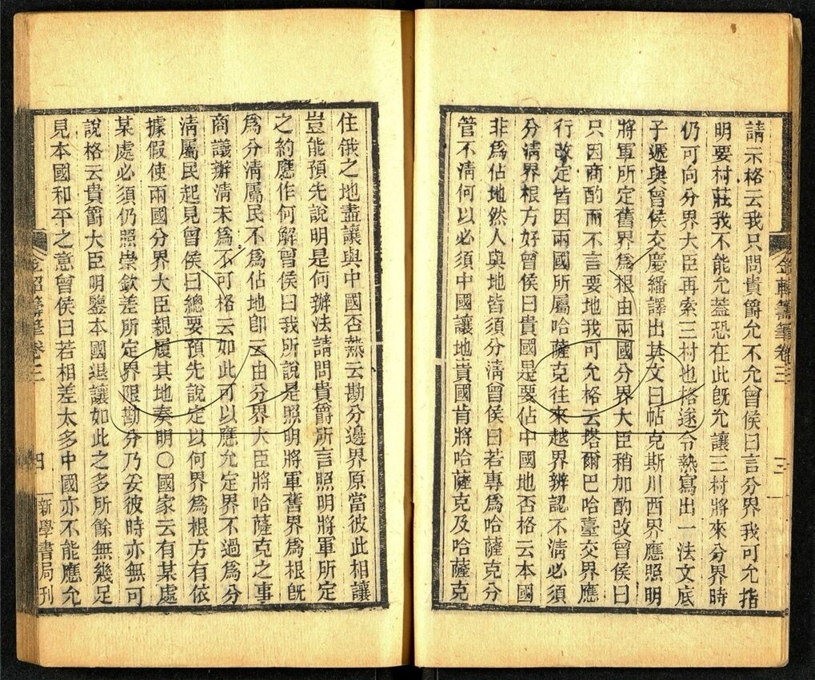 請示格云我只問貴爵允不允曾侯曰言分界我可允指
明要村莊我不能允蓋恐在此旣允讓三村將來分界時
仍可向分界大臣再索三村也格遂令熱寫出一法文底
子遞與曾侯交慶繙譯出其文曰帖克斯川西界應照明
將軍所定舊界爲根由兩國分界大臣稍加酌改曾侯曰
只因商酌而不言要地我可允格云塔爾巴哈臺交界應
行改定皆因兩國所屬哈薩克往來越界辨認不淸必須
分淸界根方好曾侯曰貴國是要佔中國地否格云本國
非爲佔地然人與地皆須分淸曾侯曰若專爲哈薩克分
管不淸何以必須中國讓地貴國肯將哈薩克及哈薩克
金軺籌筆卷三
三
住俄之地盡讓與中國否熱云勘分邊界原當彼此相讓
豈能預先說明是何辦法請問貴爵所言照明將軍所定
之約應作何解曾侯曰我所說是照明將軍舊界爲根旣
爲分淸屬民不爲佔地卽云由分界大臣將哈薩克之事
商議辦淸未爲不可格云如此可以應允定界不過爲分
淸屬民起見曾侯曰總要預先說定以何界爲根方有依
據假使兩國分界大臣親履其地奏明〇國家云有某處
某處必須仍照崇欽差所定界限勘分乃妥彼時亦無可
說格云貴爵大臣明鑒本國退讓如此之多所餘無幾足
見本國和平之意曾侯曰若相差太多中國亦不能應允
金軺籌筆卷三
四
新學書局刊